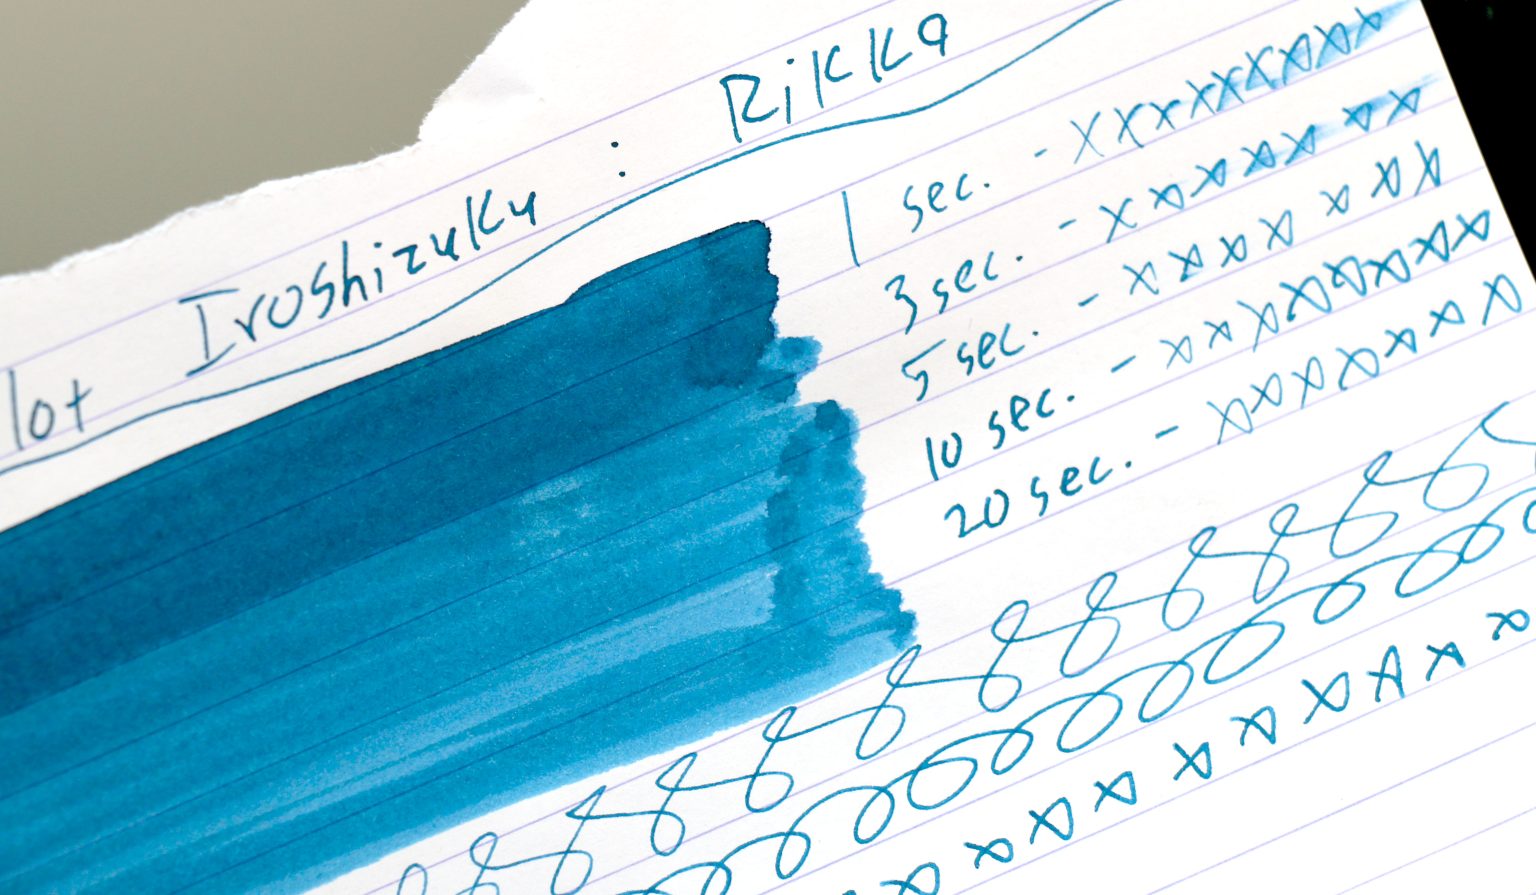 lot Iroshizuku : Rikka
1 sec. - xxxxxxxxx
3 sec. - xxxxxxx
5 sec. - xxxxxxx
10 sec. - xxxxxxxx
20 sec. - xxxxxxx
xxxxxxxxxx